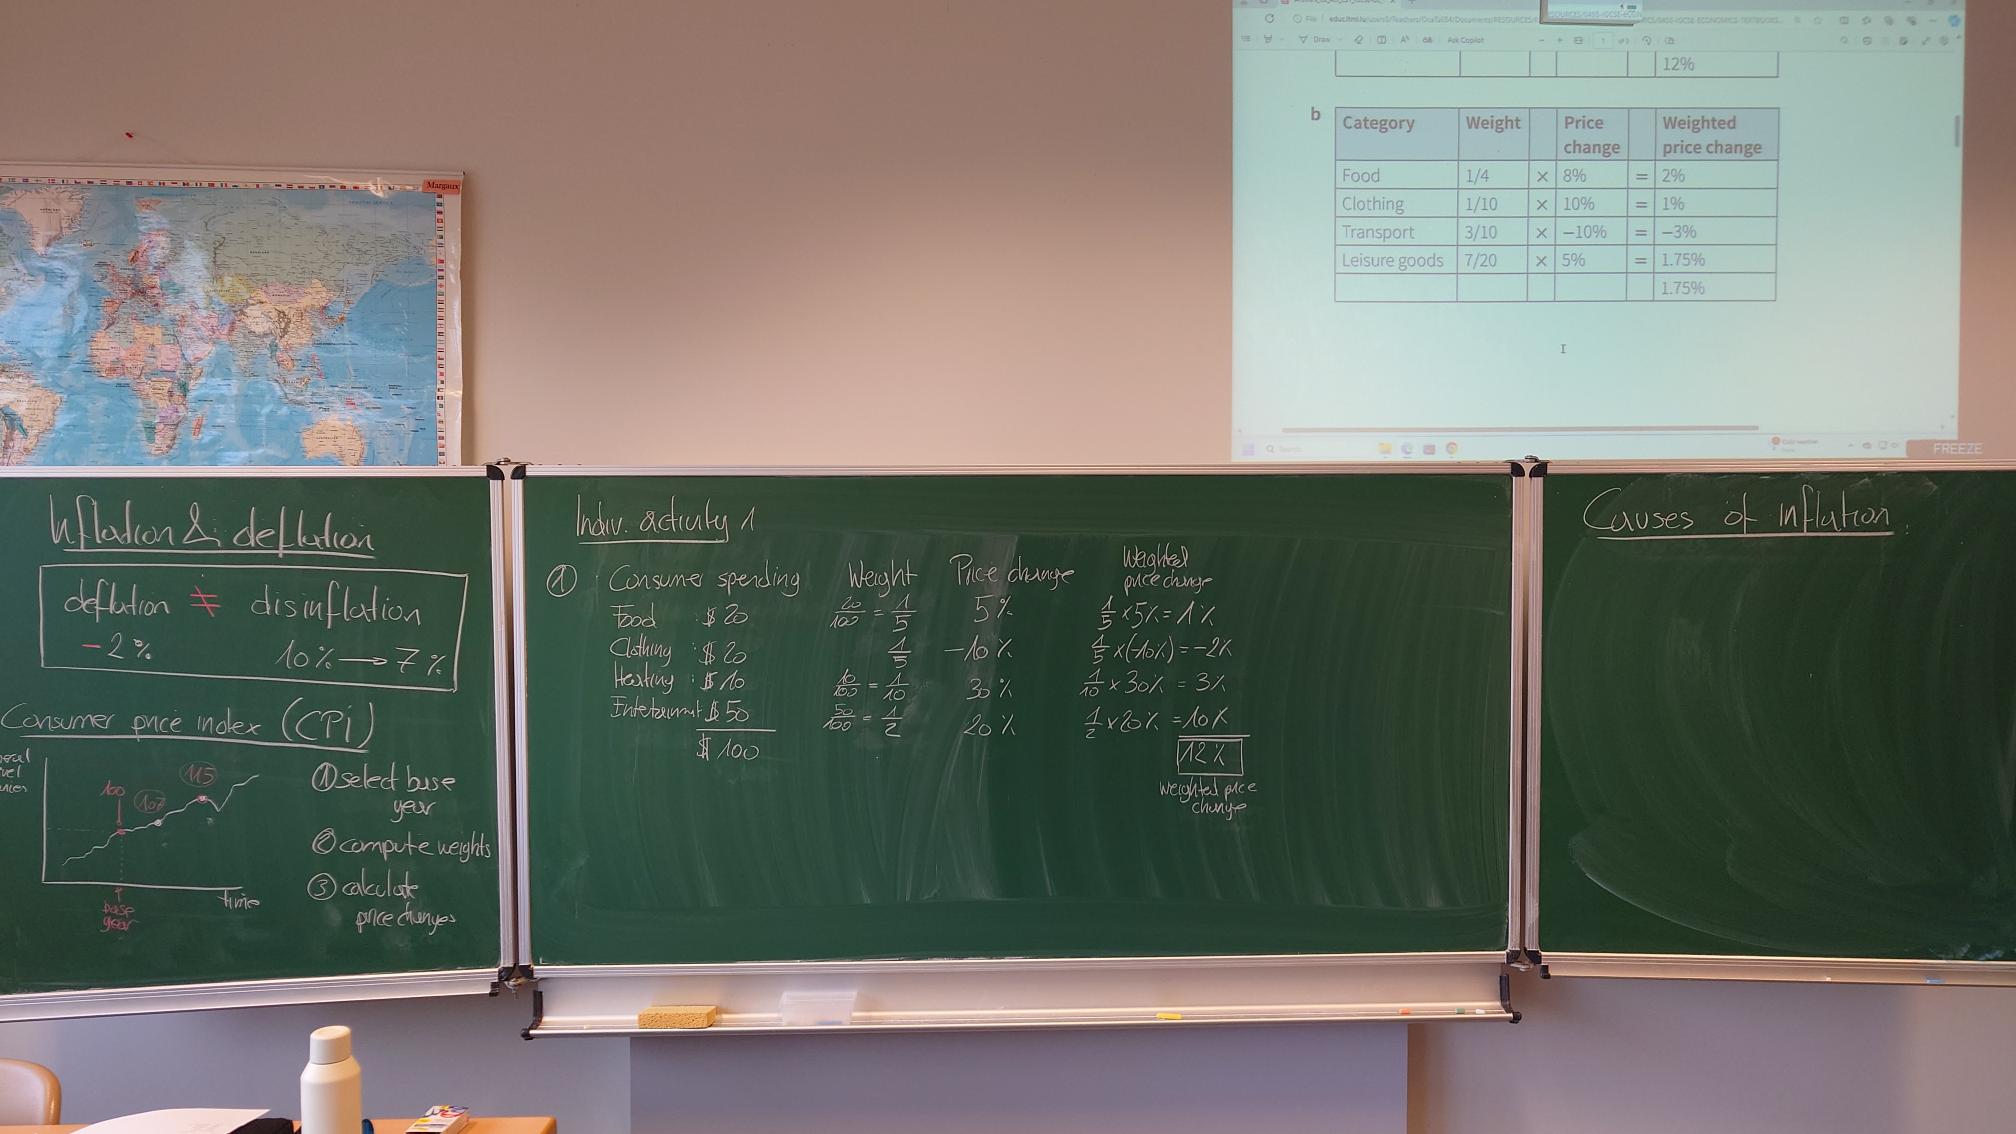 Margaux
Ask Copilot
Draw
12%
b
Category Weight Price change Weighted price change
Food 1/4 × 8% = 2%
Clothing 1/10 × 10% = 1%
Transport 3/10 × −10% = −3%
Leisure goods 7/20 × 5% = 1.75%
1.75%
Search
FREEZE
Inflation & deflation
deflation ≠ disinflation
-2% 10% → 7%
Consumer price index (CPi)
115
100
107
time
base
year
① select base
year
② compute weights
③ calculate
price changes
Indiv. activity 1
① Consumer spending Weight Price change Weighted price change
Food : $ 20 20/100 = 1/5 5% 1/5 × 5% = 1%
Clothing : $ 20 1/5 -10% 1/5 × (-10%) = -2%
Heating : $ 10 10/100 = 1/10 30% 1/10 × 30% = 3%
$ 50 50/100 = 1/2 20% 1/2 × 20% = 10%
$ 100 12%
weighted price
change
Causes of inflation